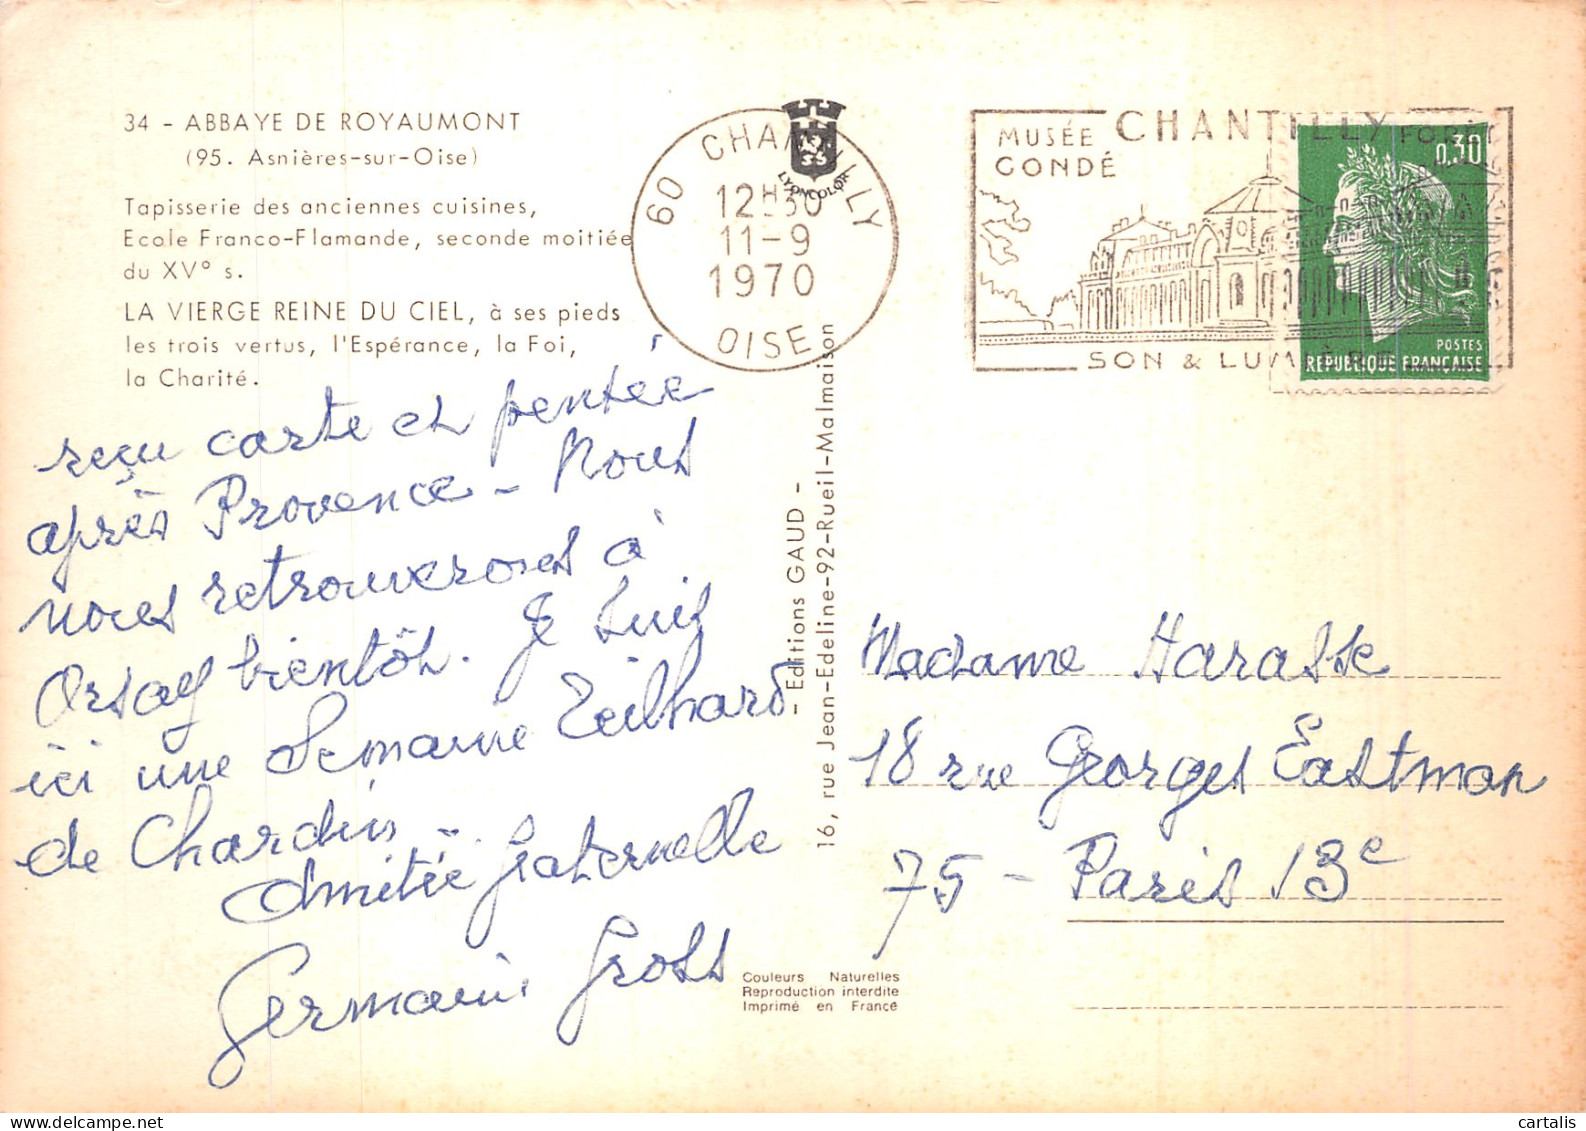 34 - ABBAYE DE ROYAUMONT
(95. Asnières-sur-Oise)
Tapisserie des anciennes cuisines,
Ecole Franco-Flamande, seconde moitiée
du XV° s.
LA VIERGE REINE DU CIEL, à ses pieds
les trois vertus, l'Espérance, la Foi,
la Charité.
60 CHANTILLY
12H30
11-9
1970
OISE
LYONCOLOR
MUSÉE
CONDÉ
CHANTILLY
FORÊT
SON & LUMIÈRE
0,30
POSTES
REPUBLIQUE FRANÇAISE
reçu carte et pensée
après Provence - Nous
nous retrouverons à
Orsay bientôt. Je suis
ici une Semaine Teilhard
de Chardin.
Amitié fraternelle
Germaine Gross
- Editions GAUD -
16, rue Jean-Edeline-92-Rueil-Malmaison
Madame Harasse
18 rue Georges Eastman
75 - Paris 13e
Couleurs Naturelles
Reproduction interdite
Imprimé en France
cartalis
delcampe.net